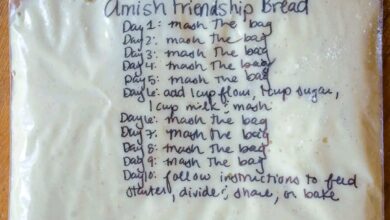 Amish Friendship Bread
Day 1: mash the bag
Day 2: mash the bag
Day 3: mash the bag
Day 4: mash the bag
Day 5: mash the bag
Day 6: add 1 cup flour, 1 cup sugar,
1 cup milk - mash
Day 6: mash the bag
Day 7: mash the bag
Day 8: mash the bag
Day 9: mash the bag
Day 10: follow instructions to feed
starter, divide, share, or bake